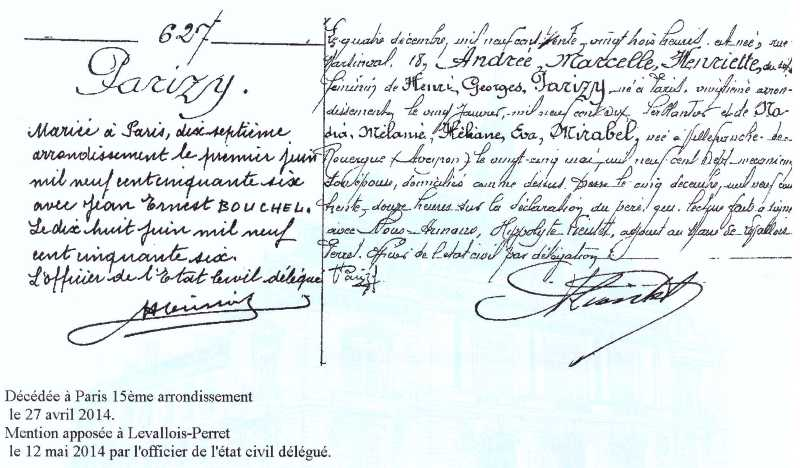 627
Parizy.
Mariée à Paris, dix septième
arrondissement le premier juin
mil neuf cent cinquante six
avec Jean Ernest BOUCHEL.
Le dix huit juin mil neuf
cent cinquante six.
L'officier de l'Etat Civil délégué
Le quatre décembre, mil neuf cent trente, vingt trois heures est née, rue
18, Andrée, Marcelle, Henriette, du sexe
féminin de Henri, Georges, Parizy, né à Paris, vingtième arron-
dissement, le vingt janvier, mil neuf cent et de Ma-
ria, Mélanie, Eva, Mirabel, née à Villefranche-de-
Rouergue (Aveyron) le vingt-cinq mai, mil neuf cent sept, mécanicienne
son épouse, domiciliés comme dessus. le cinq décembre, mil neuf cent
trente, douze heures sur la déclaration du père, qui, lecture faite a signé
avec Nous, Hippolyte adjoint au Maire de Levallois-
Perret, officier de l'état civil par délégation.
Parizy
Décédée à Paris 15ème arrondissement
le 27 avril 2014.
Mention apposée à Levallois-Perret
le 12 mai 2014 par l'officier de l'état civil délégué.